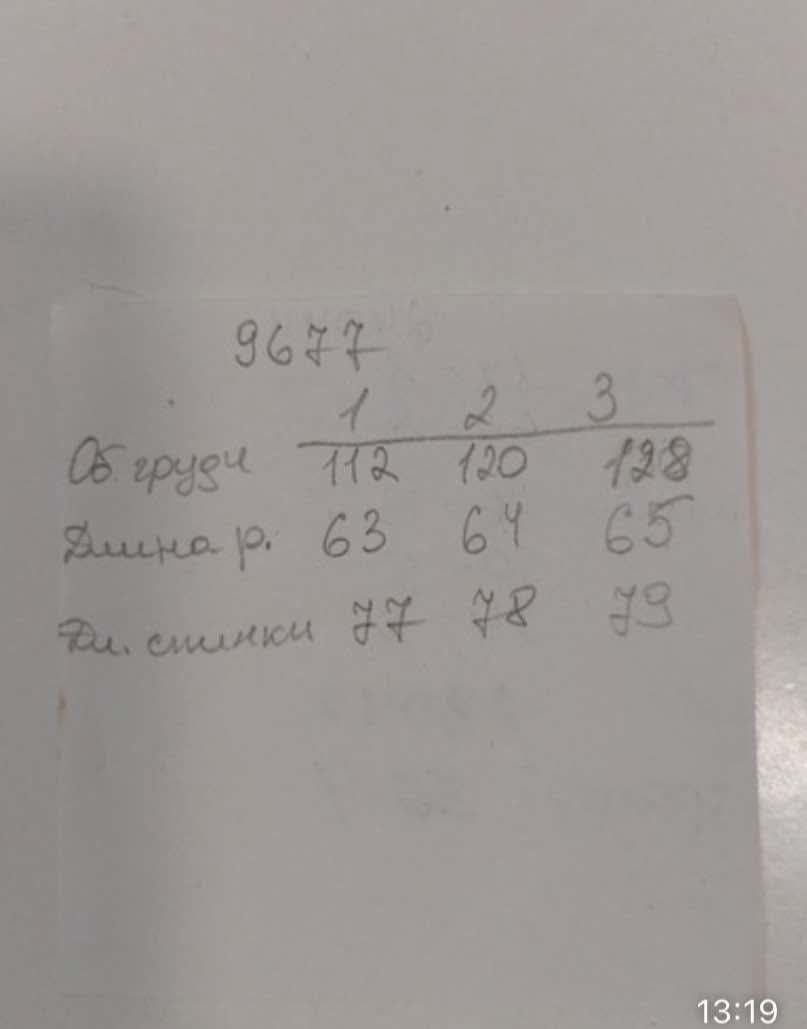 9677
1 2 3
Об. груди 112 120 128
Длина р. 63 64 65
Дл. спинки 77 78 79
13:19